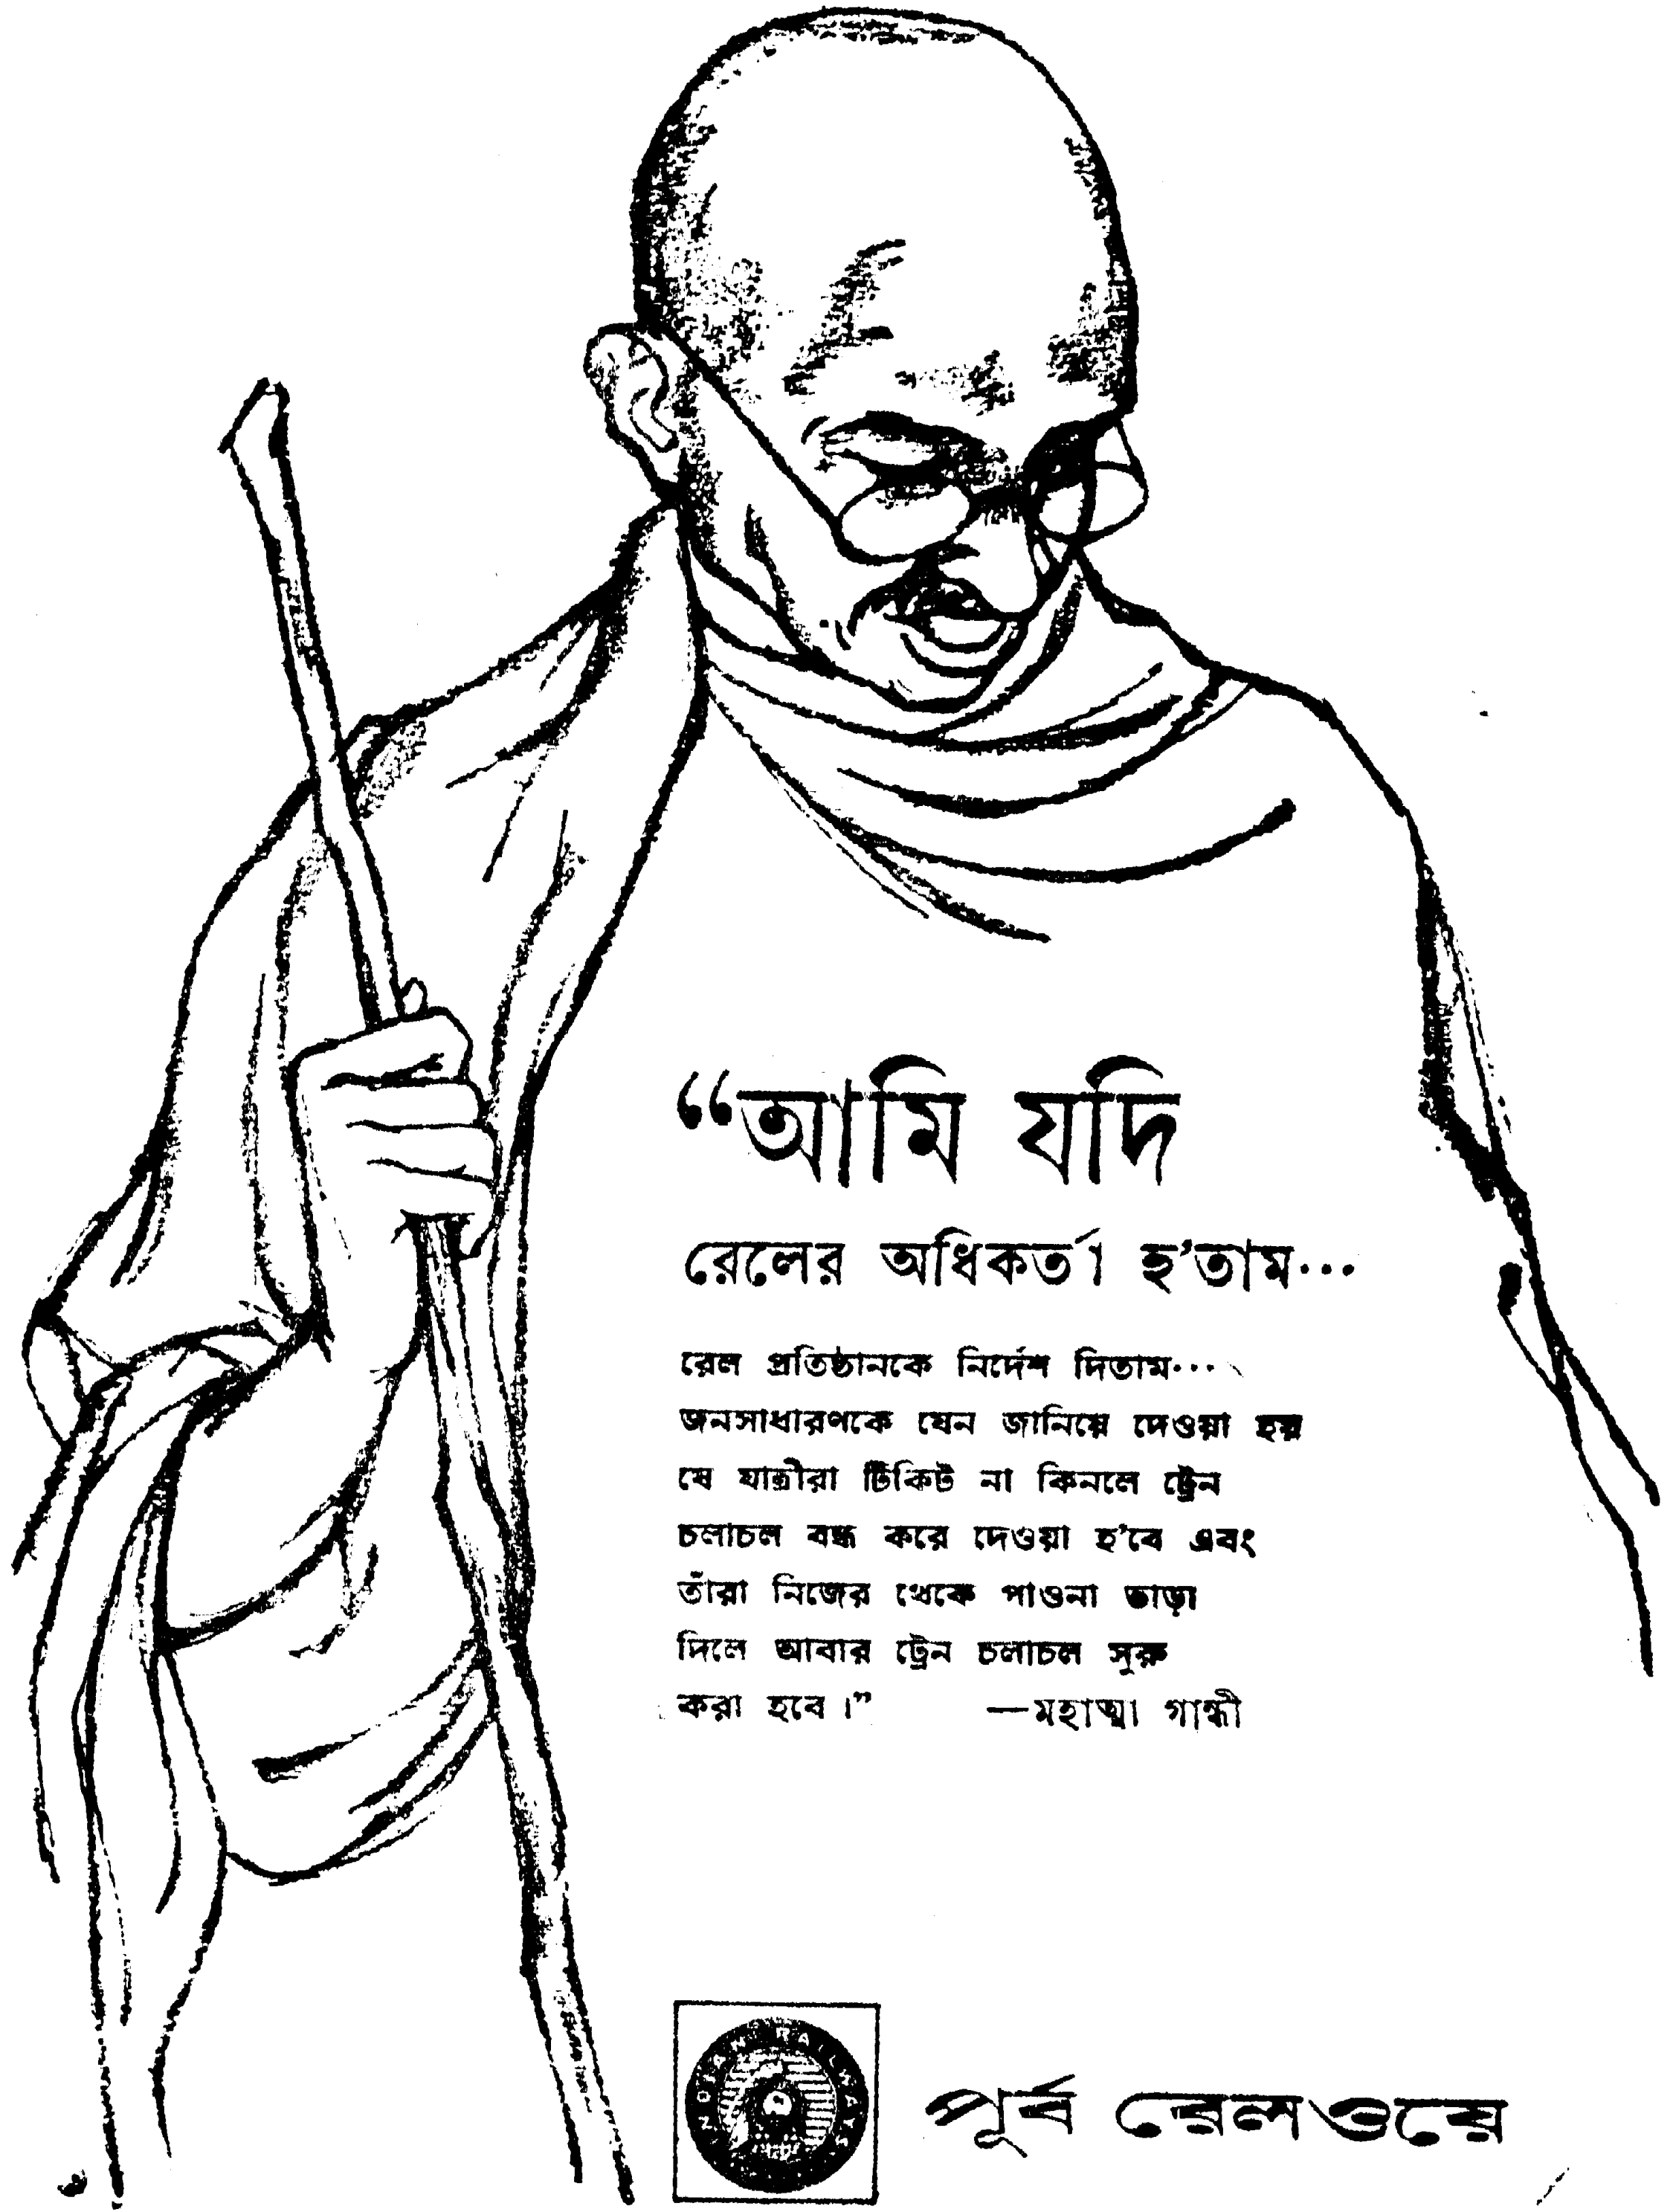 “আমি যদি
রেলের অধিকর্তা হ’তাম...
রেল প্রতিষ্ঠানকে নির্দেশ দিতাম...
জনসাধারণকে যেন জানিয়ে দেওয়া হয়
যে যাত্রীরা টিকিট না কিনলে ট্রেন
চলাচল বন্ধ করে দেওয়া হ’বে এবং
তাঁরা নিজের থেকে পাওনা ভাড়া
দিলে আবার ট্রেন চলাচল সুরু
করা হবে।” —মহাত্মা গান্ধী
INDIAN RAILWAYS
পূর্ব রেলওয়ে